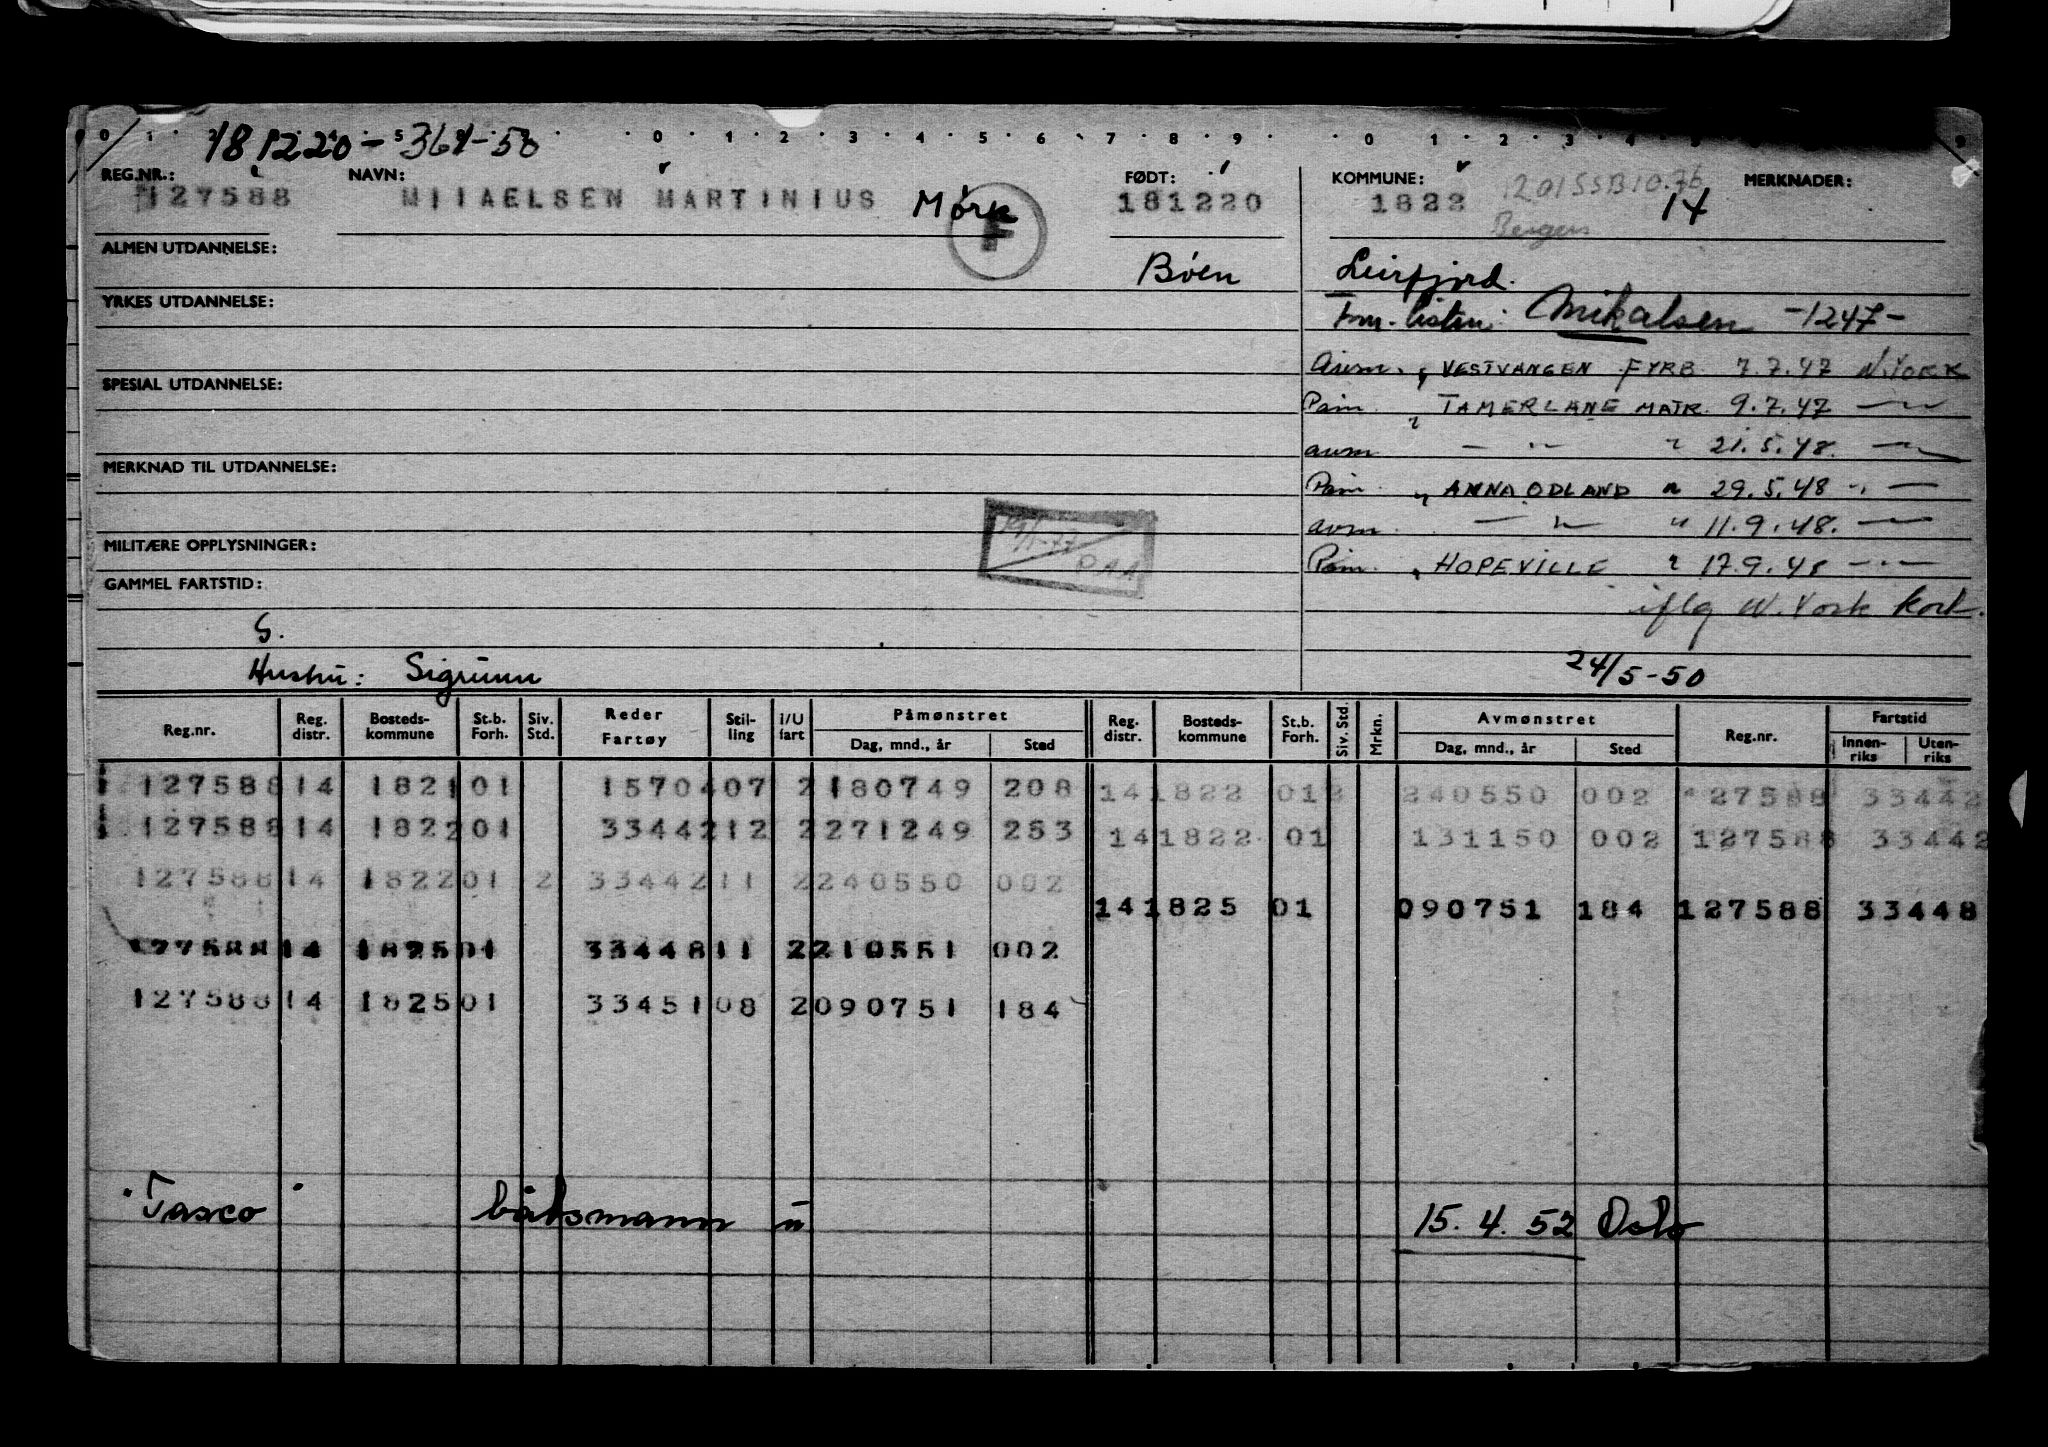 0 1 5 0 1 2 3 4 5 6 7 8 9 0 1 2 3 4 9
181220-361-50
REG.NR.: NAVN: FØDT: KOMMUNE: MERKNADER:
127588 MIIAELSEN MARTINIUS Mørk F 181220 1822 1201SSB10.76 14
Bergen
ALMEN UTDANNELSE: Bøen Leirfjord.
YRKES UTDANNELSE: Mikalsen -1247-
Avm. " VESTVANGEN FYRB. 7.7.47 N.YORK
SPESIAL UTDANNELSE:
Påm. " TAMERLANE MATR. 9.7.47 — " —
avm — " — " 21.5.48. — " —
MERKNAD TIL UTDANNELSE:
Påm. " ANNA ODLAND " 29.5.48 - " —
avm. — " — " 11.9.48. — " —
MILITÆRE OPPLYSNINGER: PAA
Påm. " HOPEVILLE " 17.9.48 — " —
GAMMEL FARTSTID:
iflg N.York kort.
G.
Hustru: Sigrunn 24/5-50
Reg.nr. Reg. distr. Bosteds-kommune St.b. Forh. Siv. Std. Reder Fartøy Stil-ling I/U fart Påmønstret Dag, mnd., år Sted Reg. distr. Bosteds-kommune St.b. Forh. Siv. Std. Mrkn. Avmønstret Dag, mnd., år Sted Reg.nr. Fartstid Innen-riks Uten-riks
127588 14 1821 01 15704 07 2 180749 208 14 1822 01 2 240550 002 127588 33442
127588 14 1822 01 33442 12 2 271249 253 14 1822 01 131150 002 127588 33442
127588 14 1822 01 2 33442 11 2 240550 002
14 1825 01 090751 184 127588 33448
127588 14 1825 01 33448 11 2 210551 002
127588 14 1825 01 33451 08 2 090751 184
"Tasco" båtsmann u 15.4.52 Oslo